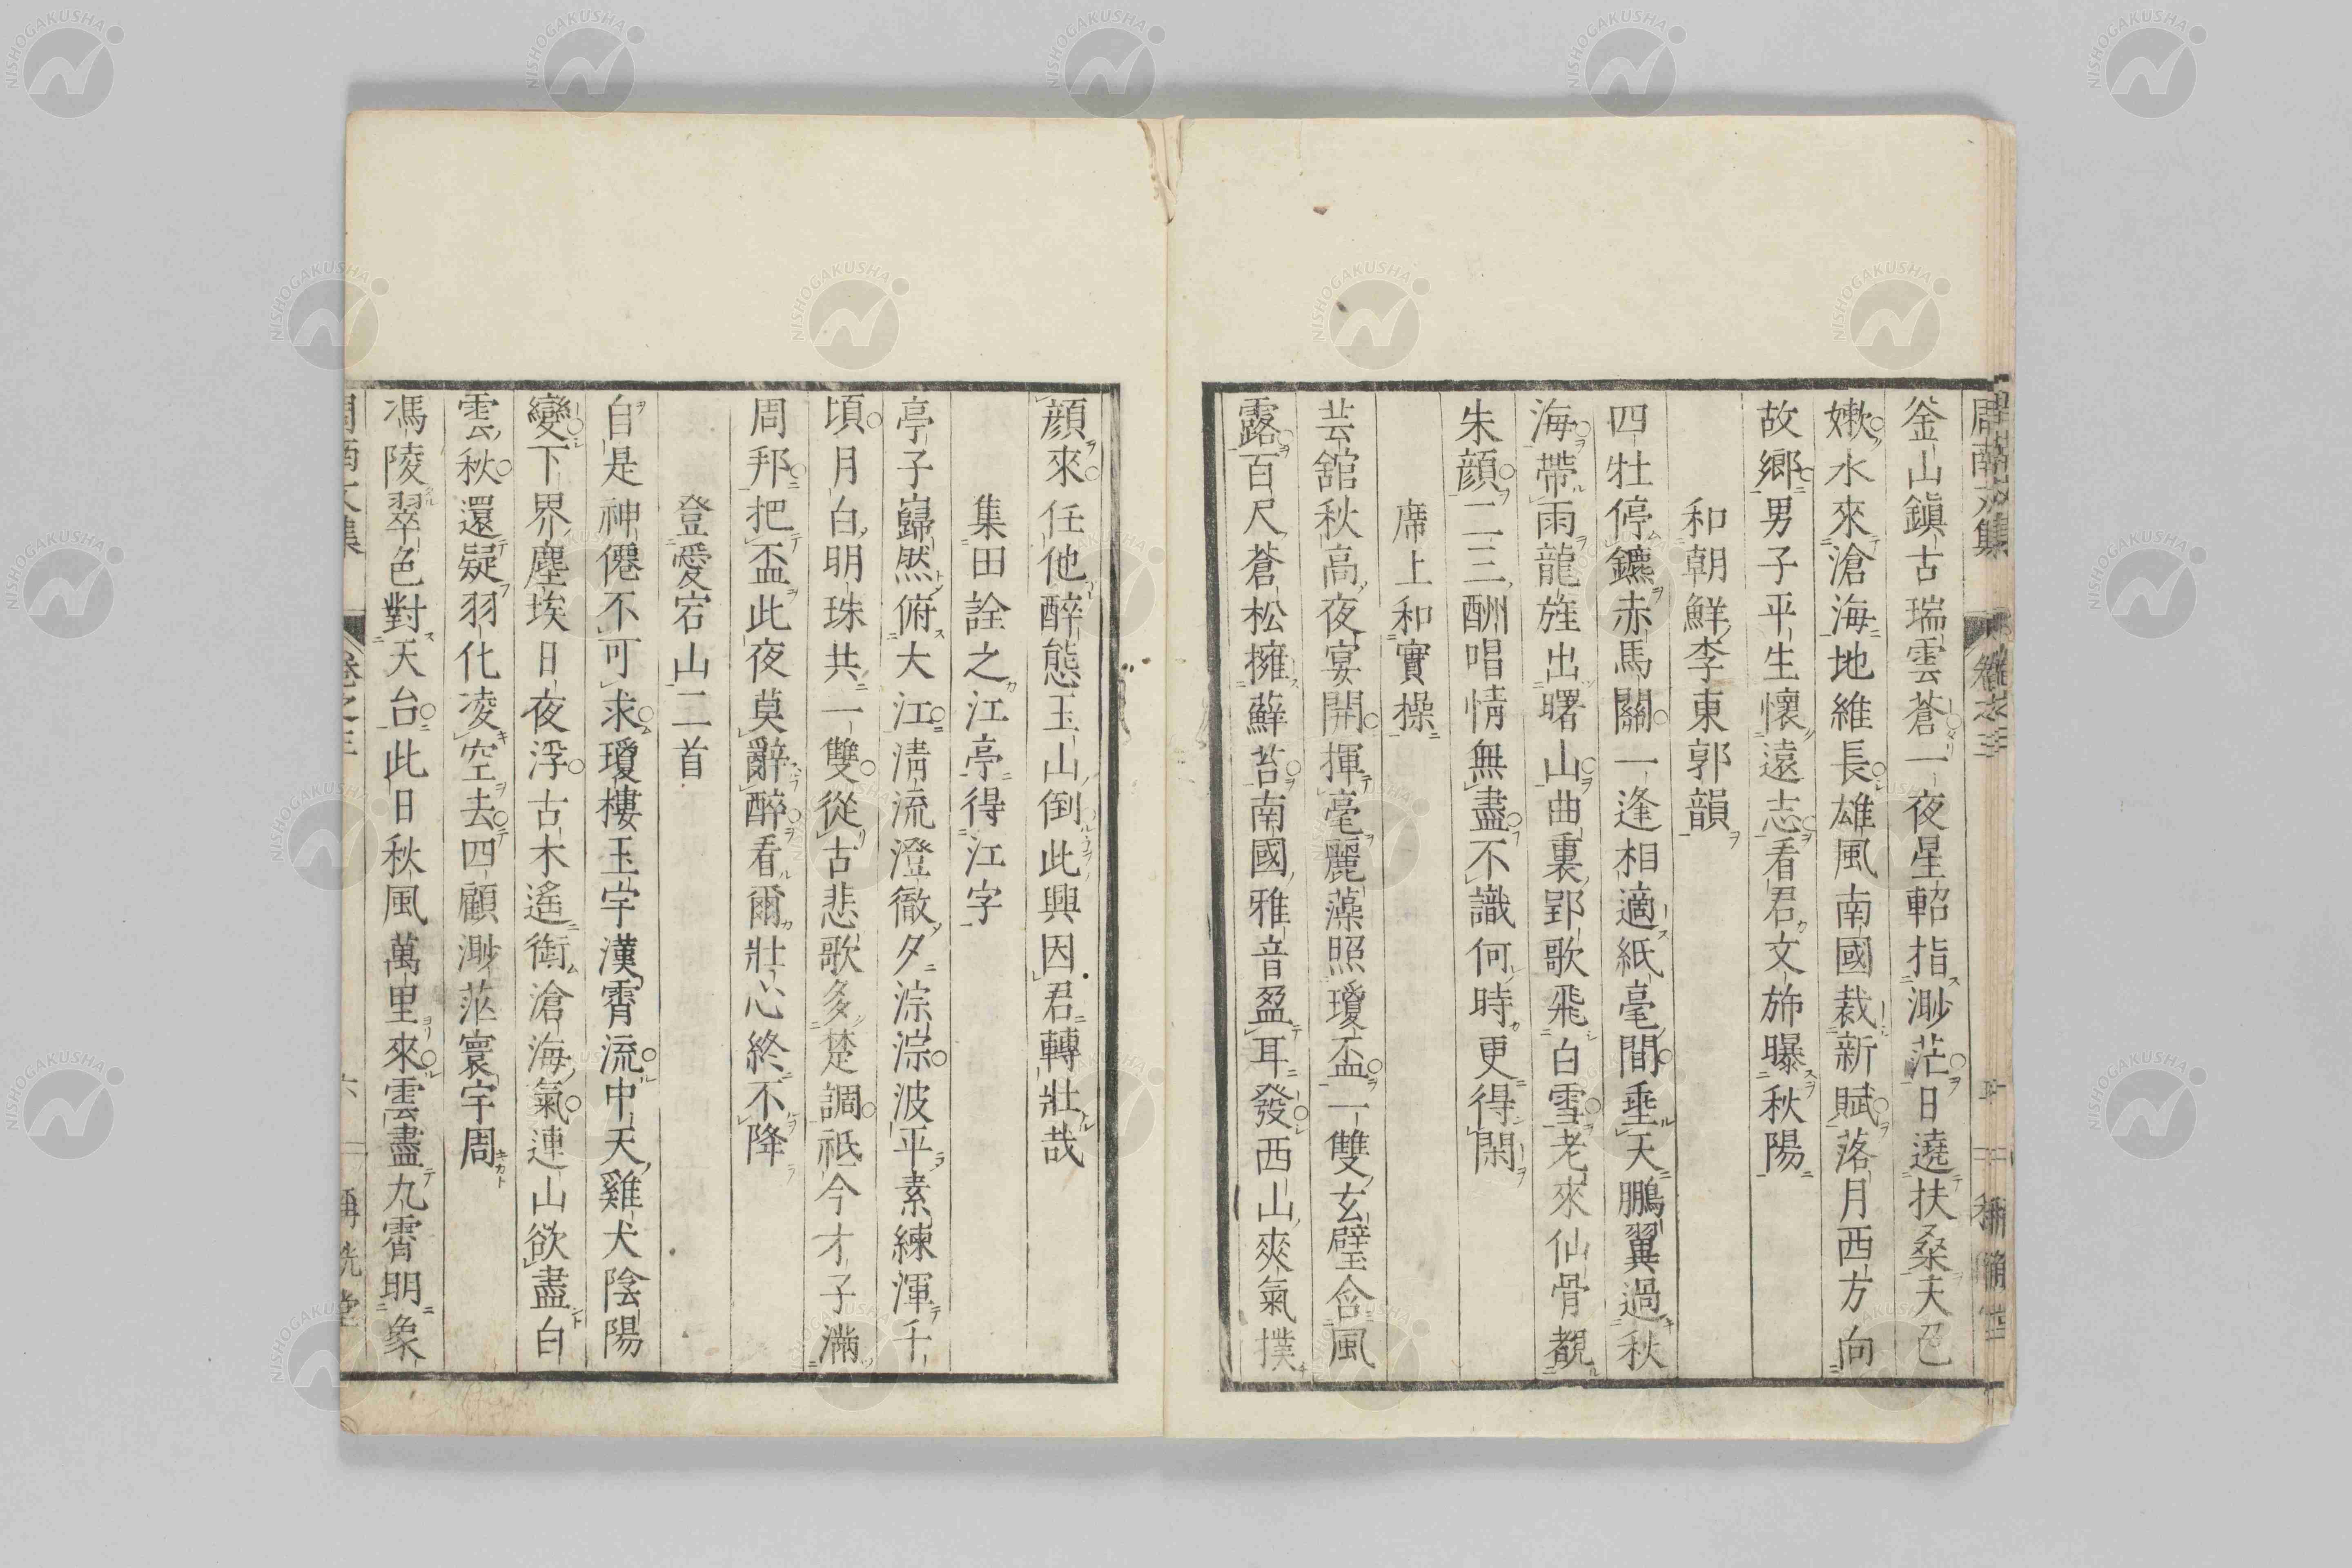 周南文集 卷之三
釜山鎭古瑞雲蒼一夜星軺指渺茫日遶扶桑天色
嫩水來滄海地維長雄風南國裁新賦落月西方向
故郷男子平生懷遠志看君文斾曝秋陽
和朝鮮李東郭韻
四牡停鑣赤馬關一逢相適紙毫間垂天鵬翼過秋
海帶雨龍旌出曙山曲裏郢歌飛白雪老來仙骨覩
朱顔二三酬唱情無盡不識何時更得閑
席上和實操
芸舘秋高夜宴開揮毫麗藻照瓊盃一雙玄璧含風
露百尺蒼松擁蘚苔南國雅音盈耳發西山爽氣撲
顔來任他醉態玉山倒此興因君轉壯哉
集田詮之江亭得江字
亭子巋然俯大江淸流澄徹夕淙淙波平素練渾千
頃月白明珠共一雙從古悲歌多楚調祇今才子滿
周邦把盃此夜莫辭醉看爾壯心終不降
登愛宕山二首
自是神僊不可求瓊樓玉宇漢霄流中天雞犬陰陽
變下界塵埃日夜浮古木遙銜滄海氣連山欲盡白
雲秋還疑羽化凌空去四顧渺茫寰宇周
馮陵翠色對天台此日秋風萬里來雲盡九霄明象
周南文集 卷之三 六
NISHOGAKUSHA